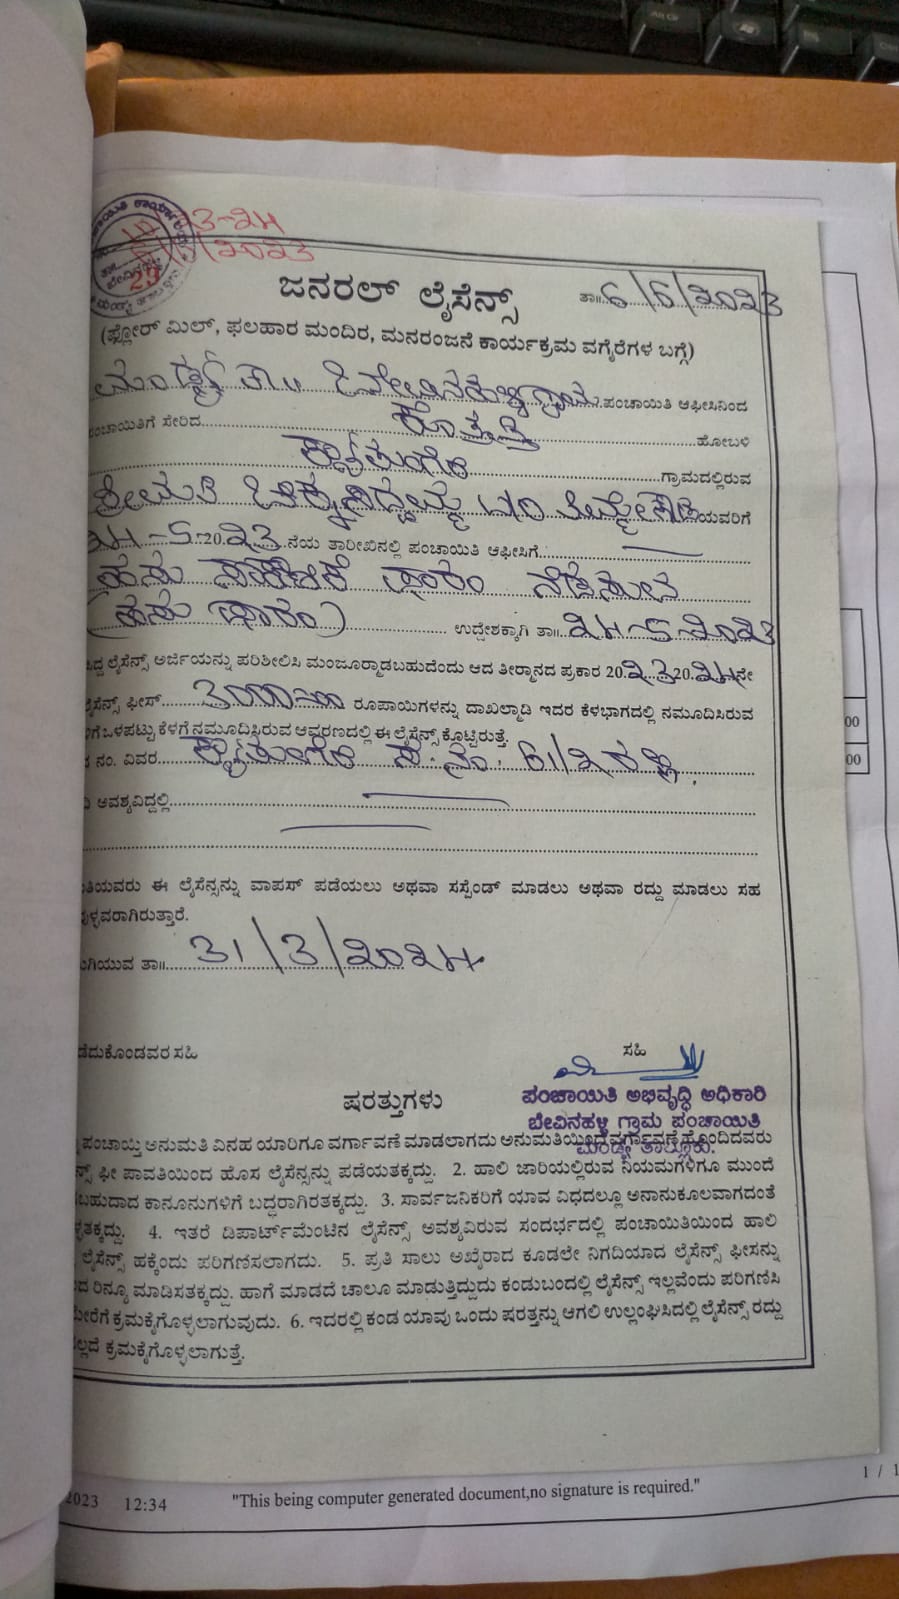 23-24
2023
29
ಜನರಲ್ ಲೈಸೆನ್ಸ್
ತಾ॥ 6/6/2023
(ಫ್ಲೋರ್ ಮಿಲ್, ಫಲಹಾರ ಮಂದಿರ, ಮನರಂಜನೆ ಕಾರ್ಯಕ್ರಮ ವಗೈರೆಗಳ ಬಗ್ಗೆ)
ಮಂಡ್ಯ ತಾ॥ ಬೇವಿನಹಳ್ಳಿ ಗ್ರಾಮ ಪಂಚಾಯಿತಿ ಆಫೀಸಿನಿಂದ
ಪಂಚಾಯಿತಿಗೆ ಸೇರಿದ ಕೊತ್ತತ್ತಿ ಹೋಬಳಿ
ಗ್ರಾಮದಲ್ಲಿರುವ
ಶ್ರೀಮತಿ ಯವರಿಗೆ
24-5-2023 ನೆಯ ತಾರೀಖಿನಲ್ಲಿ ಪಂಚಾಯಿತಿ ಆಫೀಸಿಗೆ
ಹಸು ಸಾಕಾಣಿಕೆ ಫಾರಂ ನೆಡೆಸುವ
(ಹಸು ಫಾರಂ) ಉದ್ದೇಶಕ್ಕಾಗಿ ತಾ॥ 24-5-2023
ಲೈಸೆನ್ಸ್ ಅರ್ಜಿಯನ್ನು ಪರಿಶೀಲಿಸಿ ಮಂಜೂರ್ಮಾಡಬಹುದೆಂದು ಆದ ತೀರ್ಮಾನದ ಪ್ರಕಾರ 2023 2024ನೇ
ಲೈಸೆನ್ಸ್ ಫೀಸ್ 3000=00 ರೂಪಾಯಿಗಳನ್ನು ದಾಖಲ್ಮಾಡಿ ಇದರ ಕೆಳಭಾಗದಲ್ಲಿ ನಮೂದಿಸಿರುವ
ಒಳಪಟ್ಟು ಕೆಳಗೆ ನಮೂದಿಸಿರುವ ಆವರಣದಲ್ಲಿ ಈ ಲೈಸೆನ್ಸ್ ಕೊಟ್ಟಿರುತ್ತೆ.
ನಂ. ವಿವರ ಸ.ನಂ. 61/2 ರಲ್ಲಿ
ಅವಶ್ಯವಿದ್ದಲ್ಲಿ
ಈ ಲೈಸೆನ್ಸನ್ನು ವಾಪಸ್ ಪಡೆಯಲು ಅಥವಾ ಸಸ್ಪೆಂಡ್ ಮಾಡಲು ಅಥವಾ ರದ್ದು ಮಾಡಲು ಸಹ
ತಾ॥ 31/3/2024
ಸಹಿ
ಸಹಿ
ಷರತ್ತುಗಳು
ಪಂಚಾಯಿತಿ ಅಭಿವೃದ್ಧಿ ಅಧಿಕಾರಿ
ಬೇವಿನಹಳ್ಳಿ ಗ್ರಾಮ ಪಂಚಾಯಿತಿ
ಮಂಡ್ಯ ತಾಲ್ಲೂಕು.
ಪಂಚಾಯ್ತಿ ಅನುಮತಿ ವಿನಹ ಯಾರಿಗೂ ವರ್ಗಾವಣೆ ಮಾಡಲಾಗದು ಹೊಂದಿದವರು
ಫೀ ಪಾವತಿಯಿಂದ ಹೊಸ ಲೈಸೆನ್ಸನ್ನು ಪಡೆಯತಕ್ಕದ್ದು. 2. ಹಾಲಿ ಜಾರಿಯಲ್ಲಿರುವ ನಿಯಮಗಳಿಗೂ ಮುಂದೆ
ಕಾನೂನುಗಳಿಗೆ ಬದ್ಧರಾಗಿರತಕ್ಕದ್ದು. 3. ಸಾರ್ವಜನಿಕರಿಗೆ ಯಾವ ವಿಧದಲ್ಲೂ ಅನಾನುಕೂಲವಾಗದಂತೆ
4. ಇತರೆ ಡಿಪಾರ್ಟ್‌ಮೆಂಟಿನ ಲೈಸೆನ್ಸ್ ಅವಶ್ಯವಿರುವ ಸಂದರ್ಭದಲ್ಲಿ ಪಂಚಾಯಿತಿಯಿಂದ ಹಾಲಿ
ಲೈಸೆನ್ಸ್ ಹಕ್ಕೆಂದು ಪರಿಗಣಿಸಲಾಗದು. 5. ಪ್ರತಿ ಸಾಲು ಅಖೈರಾದ ಕೂಡಲೇ ನಿಗದಿಯಾದ ಲೈಸೆನ್ಸ್ ಫೀಸನ್ನು
ರಿನ್ಯೂ ಮಾಡಿಸತಕ್ಕದ್ದು. ಹಾಗೆ ಮಾಡದೆ ಚಾಲೂ ಮಾಡುತ್ತಿದ್ದುದು ಕಂಡುಬಂದಲ್ಲಿ ಲೈಸೆನ್ಸ್ ಇಲ್ಲವೆಂದು ಪರಿಗಣಿಸಿ
ಕ್ರಮಕೈಗೊಳ್ಳಲಾಗುವುದು. 6. ಇದರಲ್ಲಿ ಕಂಡ ಯಾವು ಒಂದು ಷರತ್ತನ್ನು ಆಗಲಿ ಉಲ್ಲಂಘಿಸಿದಲ್ಲಿ ಲೈಸೆನ್ಸ್ ರದ್ದು
ಕ್ರಮಕೈಗೊಳ್ಳಲಾಗುತ್ತೆ.
2023 12:34
"This being computer generated document,no signature is required."
1 / 1
00
00